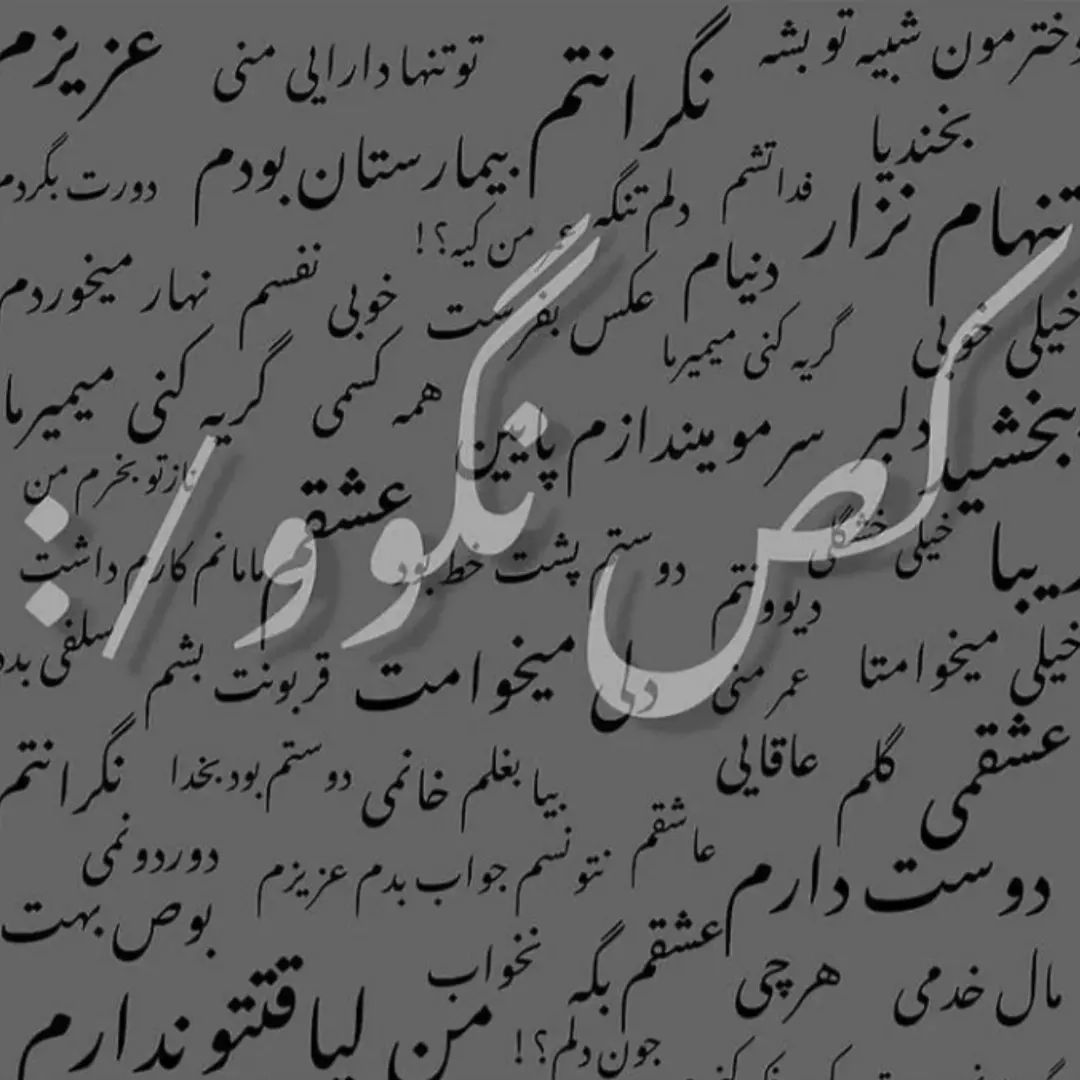 دخترمون شبیه تو بشه
تو تنها دارایی منی
عزیزم
نگرانتم
بخندیا
فداتشم
بیمارستان بودم
دورت بگردم
تنهام نزار
دلم تنگه
من کیه؟!
دنیام
عکس بفرست
خوبی
نفسم
نهار میخوردم
خیلی خوبی
گریه کنی میمیرما
همه کسمی
گریه کنی میمیرما
ببخشید
دلبر
سرمو میندازم پایین
عشقمی
نازتو بخرم من
کص نگوو/:
خیلی خشگلی
دوستم پشت خط بود
مامانم کارم داشت
زیبا
دیوونتم
سلفی بده
خیلی میخوامتا
عمر منی
دلی
میخوامت
قربونت بشم
عشقمی
گلم
عاقایی
بیا بغلم خانمی
دوستم بود بخدا
نگرانتم
عاشقم
نتونسم جواب بدم عزیزم
دوردونمی
دوست دارم
بوص بهت
عشقم بگه
نخواب
مال خدمی
هرچی
جون دلم؟!
من لیاقتتو ندارم